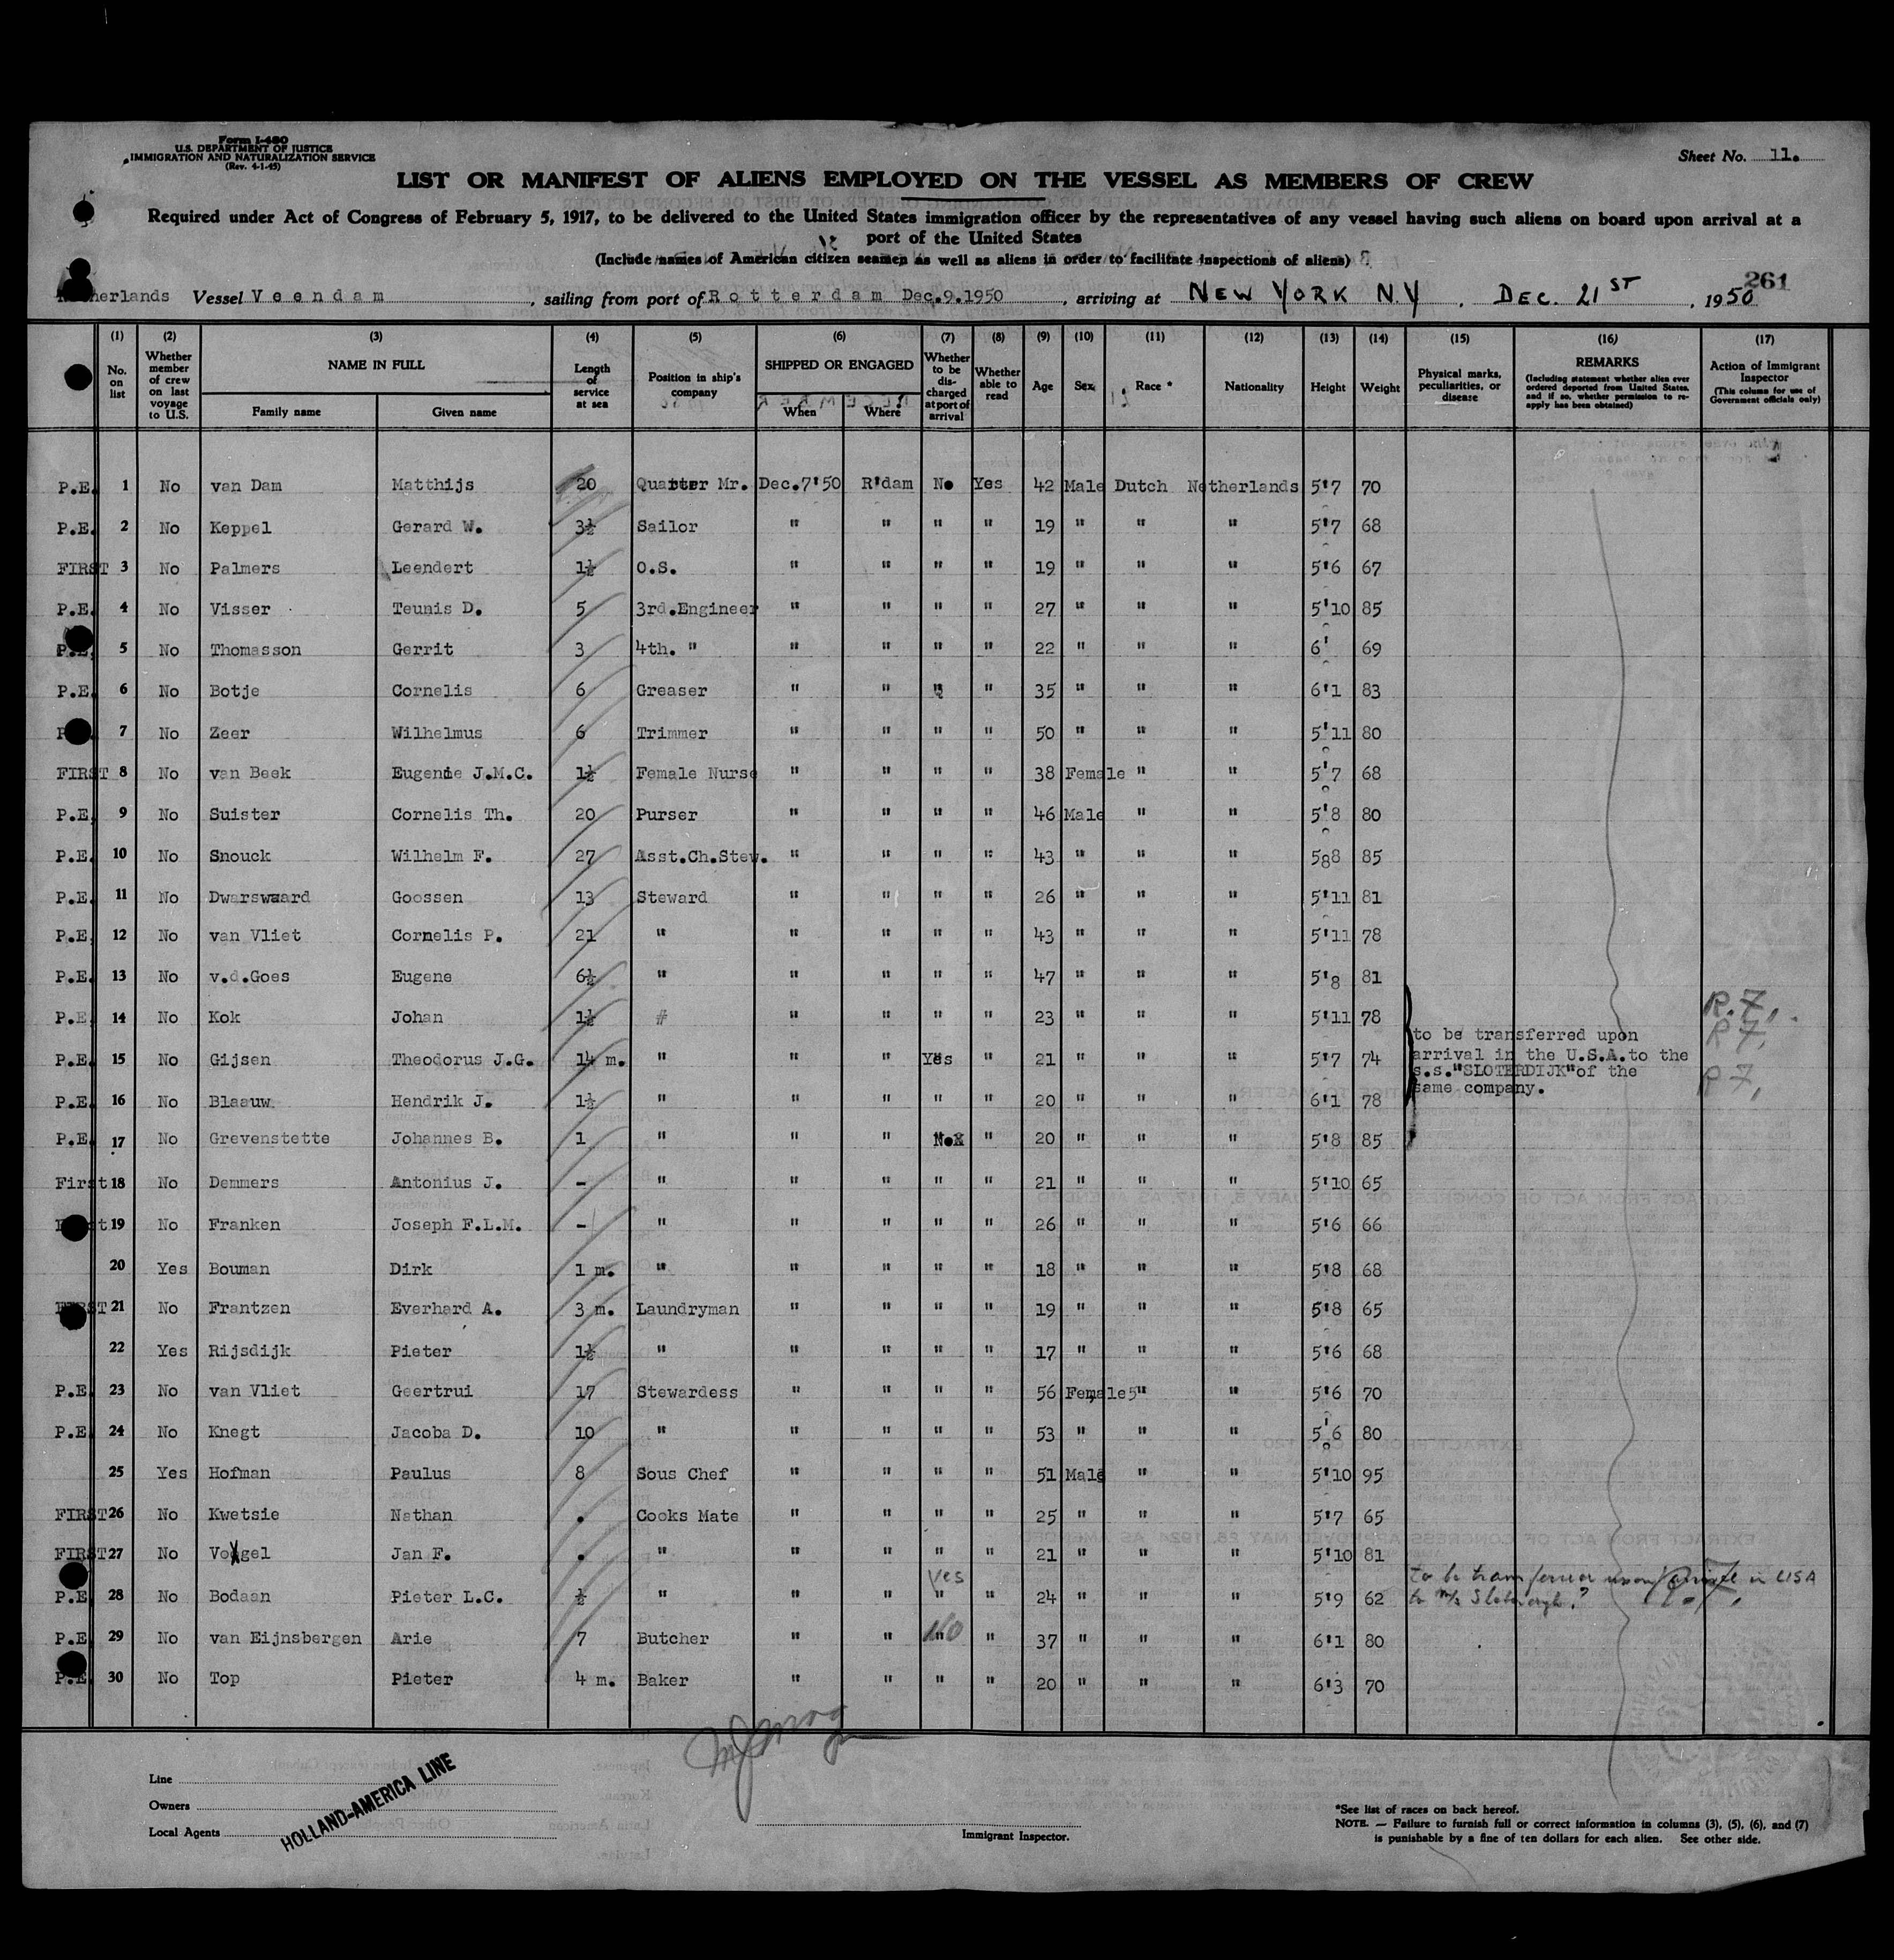 Form I-480
U.S. DEPARTMENT OF JUSTICE
IMMIGRATION AND NATURALIZATION SERVICE
(Rev. 4-1-45)
Sheet No. 11.
LIST OR MANIFEST OF ALIENS EMPLOYED ON THE VESSEL AS MEMBERS OF CREW
Required under Act of Congress of February 5, 1917, to be delivered to the United States immigration officer by the representatives of any vessel having such aliens on board upon arrival at a
port of the United States
(Include names of American citizen seamen as well as aliens in order to facilitate inspections of aliens)
261
Netherlands Vessel Veendam, sailing from port of Rotterdam Dec.9.1950, arriving at NEW YORK N.Y., DEC. 21ST, 1950
(1) (2) (3) (4) (5) (6) (7) (8) (9) (10) (11) (12) (13) (14) (15) (16) (17)
No. on list
Whether member of crew on last voyage to U.S.
NAME IN FULL
Family name
Given name
Length of service at sea
Position in ship's company
SHIPPED OR ENGAGED
When
Where
Whether to be discharged at port of arrival
Whether able to read
Age
Sex
Race *
Nationality
Height
Weight
Physical marks, peculiarities, or disease
REMARKS
(Including statement whether alien ever ordered deported from United States, and if so, whether permission to re-apply has been obtained)
Action of Immigrant Inspector
(This column for use of Government officials only)
P.E. 1 No van Dam Matthijs 20 Quarter Mr. Dec.7'50 R'dam No Yes 42 Male Dutch Netherlands 5'7 70
P.E. 2 No Keppel Gerard W. 3½ Sailor " " " " 19 " " " 5'7 68
FIRST 3 No Palmers Leendert 1½ O.S. " " " " 19 " " " 5'6 67
P.E. 4 No Visser Teunis D. 5 3rd.Engineer " " " " 27 " " " 5'10 85
P.E. 5 No Thomasson Gerrit 3 4th. " " " " " 22 " " " 6' 69
P.E. 6 No Botje Cornelis 6 Greaser " " " " 35 " " " 6'1 83
P.E. 7 No Zeer Wilhelmus 6 Trimmer " " " " 50 " " " 5'11 80
FIRST 8 No van Beek Eugenie J.M.C. 1½ Female Nurse " " " " 38 Female " " 5'7 68
P.E. 9 No Suister Cornelis Th. 20 Purser " " " " 46 Male " " 5'8 80
P.E. 10 No Snouck Wilhelm F. 27 Asst.Ch.Stew. " " " " 43 " " " 588 85
P.E. 11 No Dwarswaard Goossen 13 Steward " " " " 26 " " " 5'11 81
P.E. 12 No van Vliet Cornelis P. 21 " " " " " 43 " " " 5'11 78
P.E. 13 No v.d.Goes Eugene 6½ " " " " " 47 " " " 5'8 81
P.E. 14 No Kok Johan 1½ " " " " " 23 " " " 5'11 78 R.7,.
P.E. 15 No Gijsen Theodorus J.G. 14 m. " " " Yes " 21 " " " 5'7 74 R7,
to be transferred upon
arrival in the U.S.A.to the
s.s."SLOTERDIJK"of the
same company.
P.E. 16 No Blaauw Hendrik J. 1½ " " " " " 20 " " " 6'1 78 R7,
P.E. 17 No Grevenstette Johannes B. 1 " " " No " 20 " " " 5'8 85
First 18 No Demmers Antonius J. - " " " " " 21 " " " 5'10 65
First 19 No Franken Joseph F.L.M. - " " " " " 26 " " " 5'6 66
20 Yes Bouman Dirk 1 m. " " " " " 18 " " " 5'8 68
FIRST 21 No Frantzen Everhard A. 3 m. Laundryman " " " " 19 " " " 5'8 65
22 Yes Rijsdijk Pieter 1½ " " " " " 17 " " " 5'6 68
P.E. 23 No van Vliet Geertrui 17 Stewardess " " " " 56 Female5" " 5'6 70
P.E. 24 No Knegt Jacoba D. 10 " " " " " 53 " " " 5'6 80
25 Yes Hofman Paulus 8 Sous Chef " " " " 51 Male " " 5'10 95
FIRST 26 No Kwetsie Nathan . Cooks Mate " " " " 25 " " " 5'7 65
FIRST 27 No Vogel Jan F. . " " " " " 21 " " " 5'10 81
P.E. 28 No Bodaan Pieter L.C. ½ " " " Yes " 24 " " " 5'9 62 to be transferred upon arrival in USA
to m/s R.7,
P.E. 29 No van Eijnsbergen Arie 7 Butcher " " No " 37 " " " 6'1 80
P.E. 30 No Top Pieter 4 m. Baker " " " " 20 " " " 6'3 70
Line
Owners
Local Agents
HOLLAND-AMERICA LINE
Immigrant Inspector.
*See list of races on back hereof.
NOTE. — Failure to furnish full or correct information in columns (3), (5), (6), and (7)
is punishable by a fine of ten dollars for each alien. See other side.